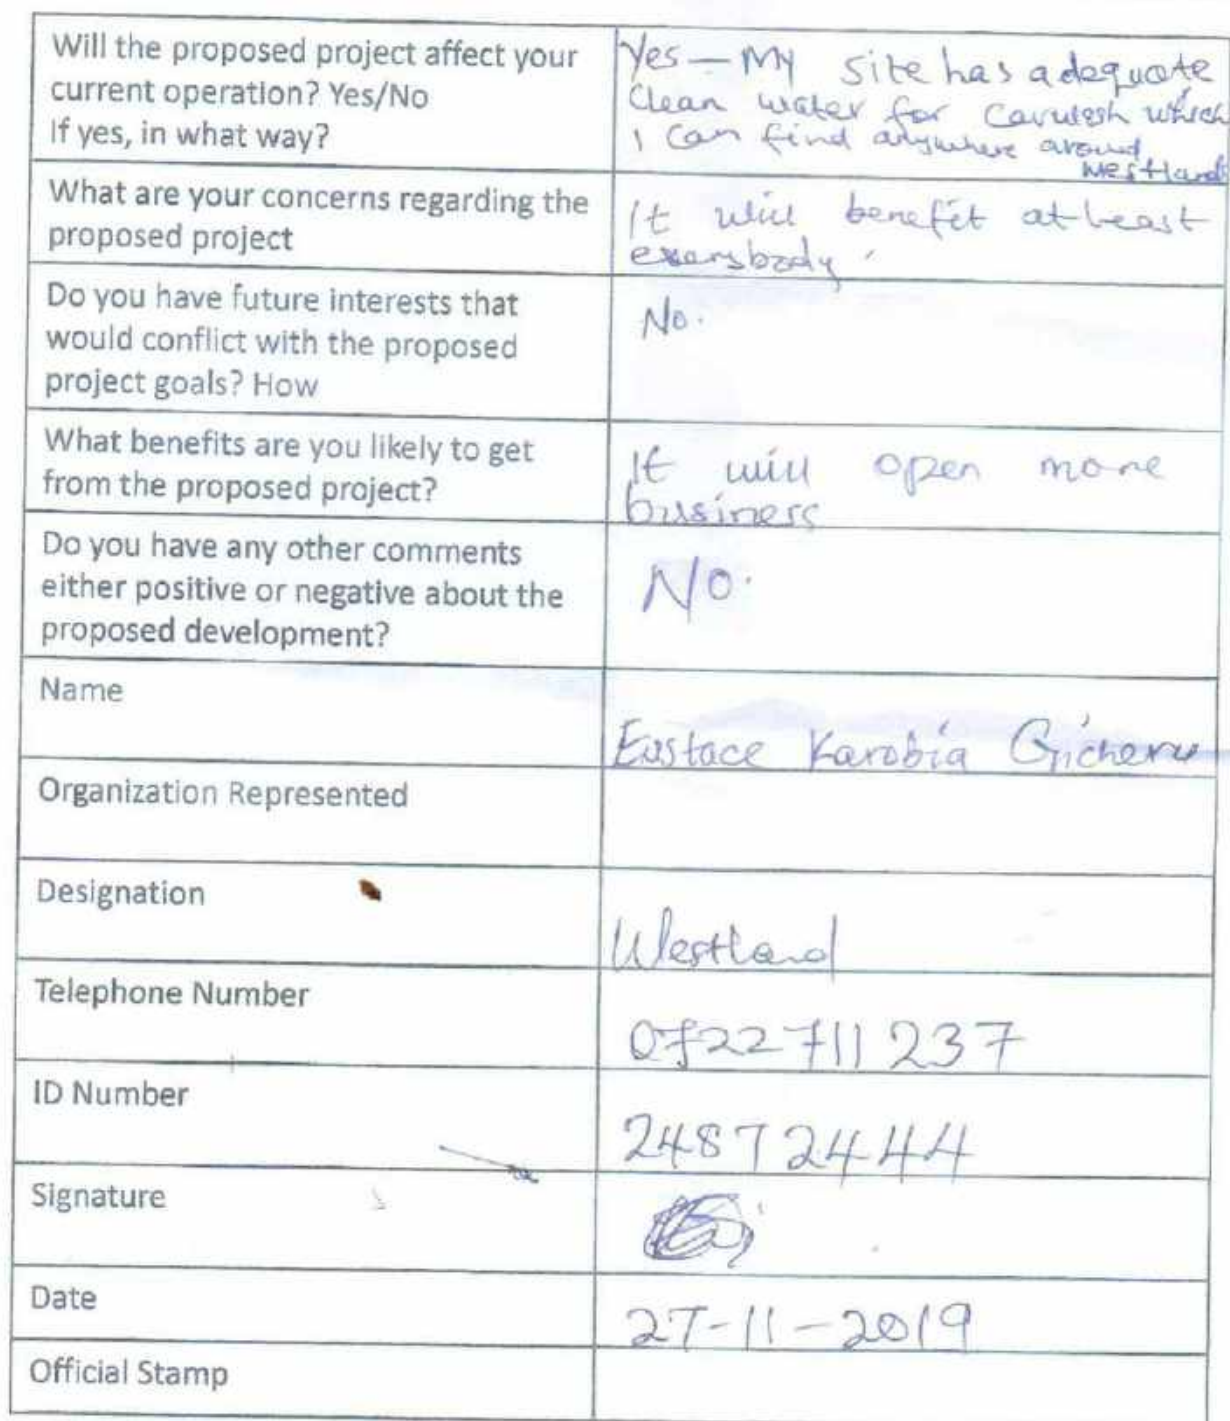 Will the proposed project affect your
current operation? Yes/No
If yes, in what way?
Yes – My site has adequate
Clean water for Carwash which
I can find anywhere around
Westlands
What are your concerns regarding the
proposed project
It will benefit at least
everybody.
Do you have future interests that
would conflict with the proposed
project goals? How
No.
What benefits are you likely to get
from the proposed project?
It will open more
business
Do you have any other comments
either positive or negative about the
proposed development?
No.
Name
Eustace Karobia Gicheru
Organization Represented
Designation
Westland
Telephone Number
0722 711 237
ID Number
24872444
Signature
Date
27-11-2019
Official Stamp